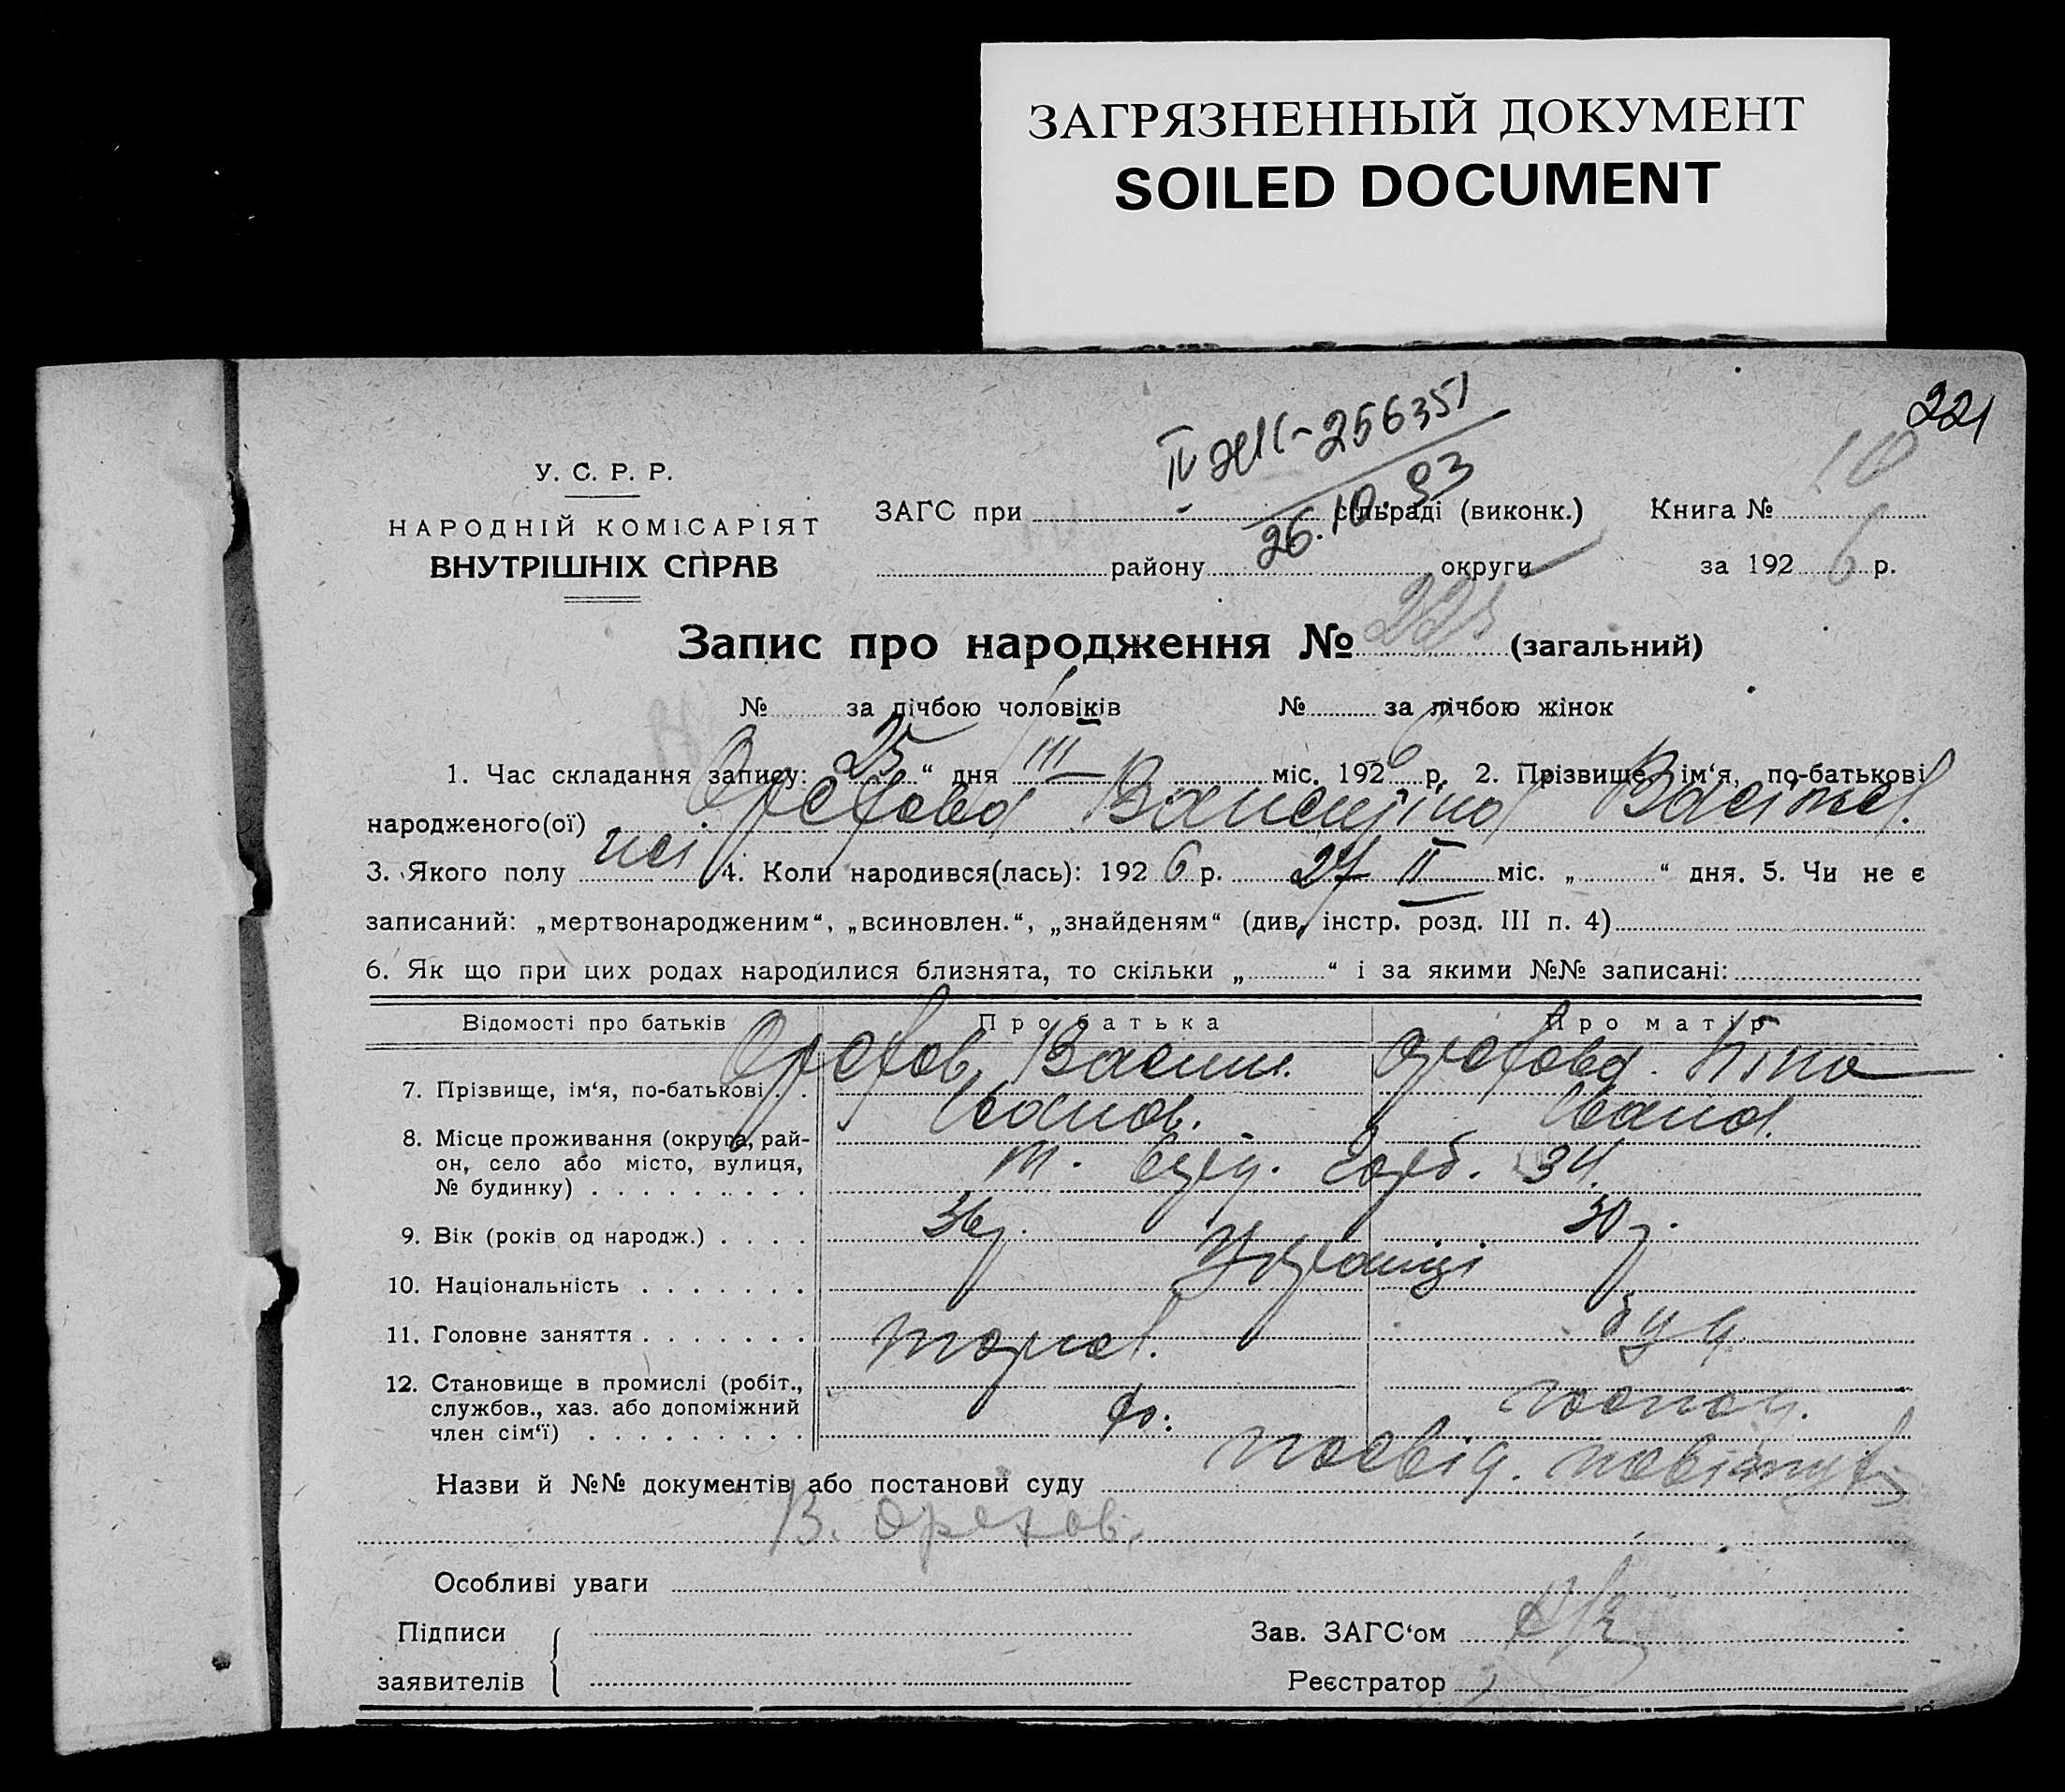 ЗАГРЯЗНЕННЫЙ ДОКУМЕНТ
SOILED DOCUMENT
221
256351
26.10.93
У. С. Р. Р.
НАРОДНІЙ КОМІСАРІЯТ
ВНУТРІШНІХ СПРАВ
ЗАГС при сільраді (виконк.) Книга № 10
району округи за 192 6 р.
Запис про народження № (загальний)
№ за лічбою чоловіків № за лічбою жінок
1. Час складання запису: 25 “ дня III міс. 192 6 р. 2. Прізвище, ім‘я, по-батькові
народженого(ої) Орехова Валентіна Васілев.
3. Якого полу жі 4. Коли народився(лась): 192 6 р. 27 II міс. „ “ дня. 5. Чи не є
записаний: „мертвонародженим“, „всиновлен.“, „знайденям“ (див. інстр. розд. III п. 4)
6. Як що при цих родах народилися близнята, то скільки „ “ і за якими №№ записані:
Відомості про батьків Про батька Про матір
7. Прізвище, ім‘я, по-батькові . . Орехов Васил. Іванов. Орехова Ніна Іванов.
8. Місце проживання (округа, рай-
он, село або місто, вулиця,
№ будинку) . . . . . . . . . 34.
9. Вік (років од народж.) . . . . 36р. 30р.
10. Національність . . . . . . . Українці
11. Головне заняття . . . . . . . торгов.
12. Становище в промислі (робіт.,
службов., хаз. або допоміжний
член сім‘ї) . . . . . . . . . господ.
Назви й №№ документів або постанови суду посвід.
В. Орехов.
Особливі уваги
Підписи Зав. ЗАГС‘ом
заявителів Реєстратор